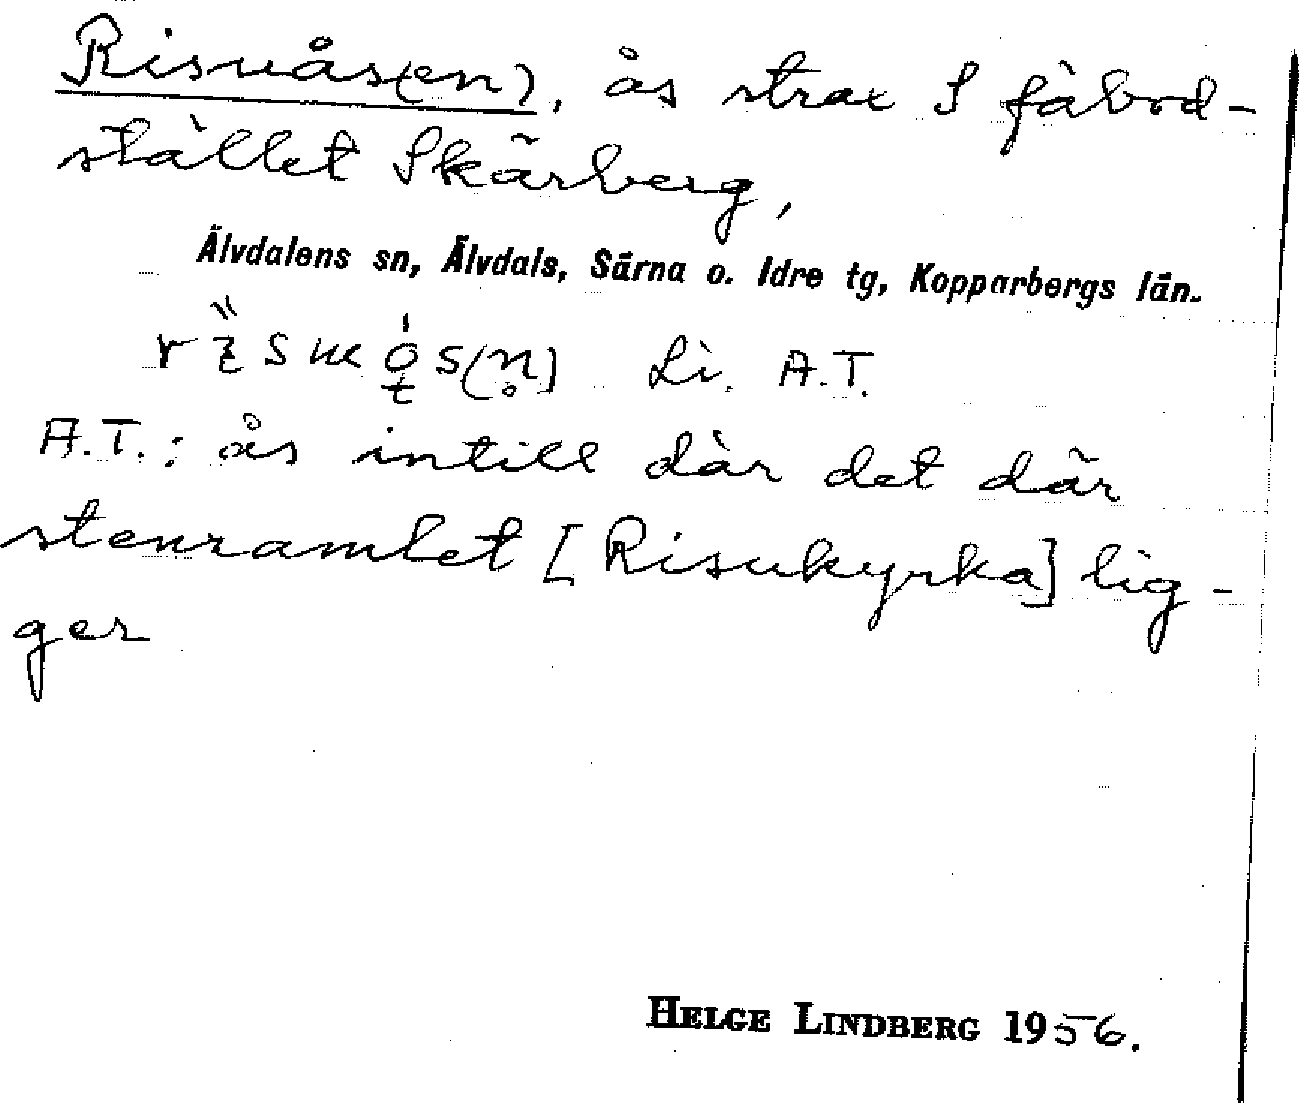 Risuås(en), ås strax S fäbod-
stället Skärberg,
Älvdalens sn, Älvdals, Särna o. Idre tg, Kopparbergs län.
Li. A.T.
A.T.: ås intill där det där
stenramlet [Risukyrka] lig-
ger
HELGE LINDBERG 1956.